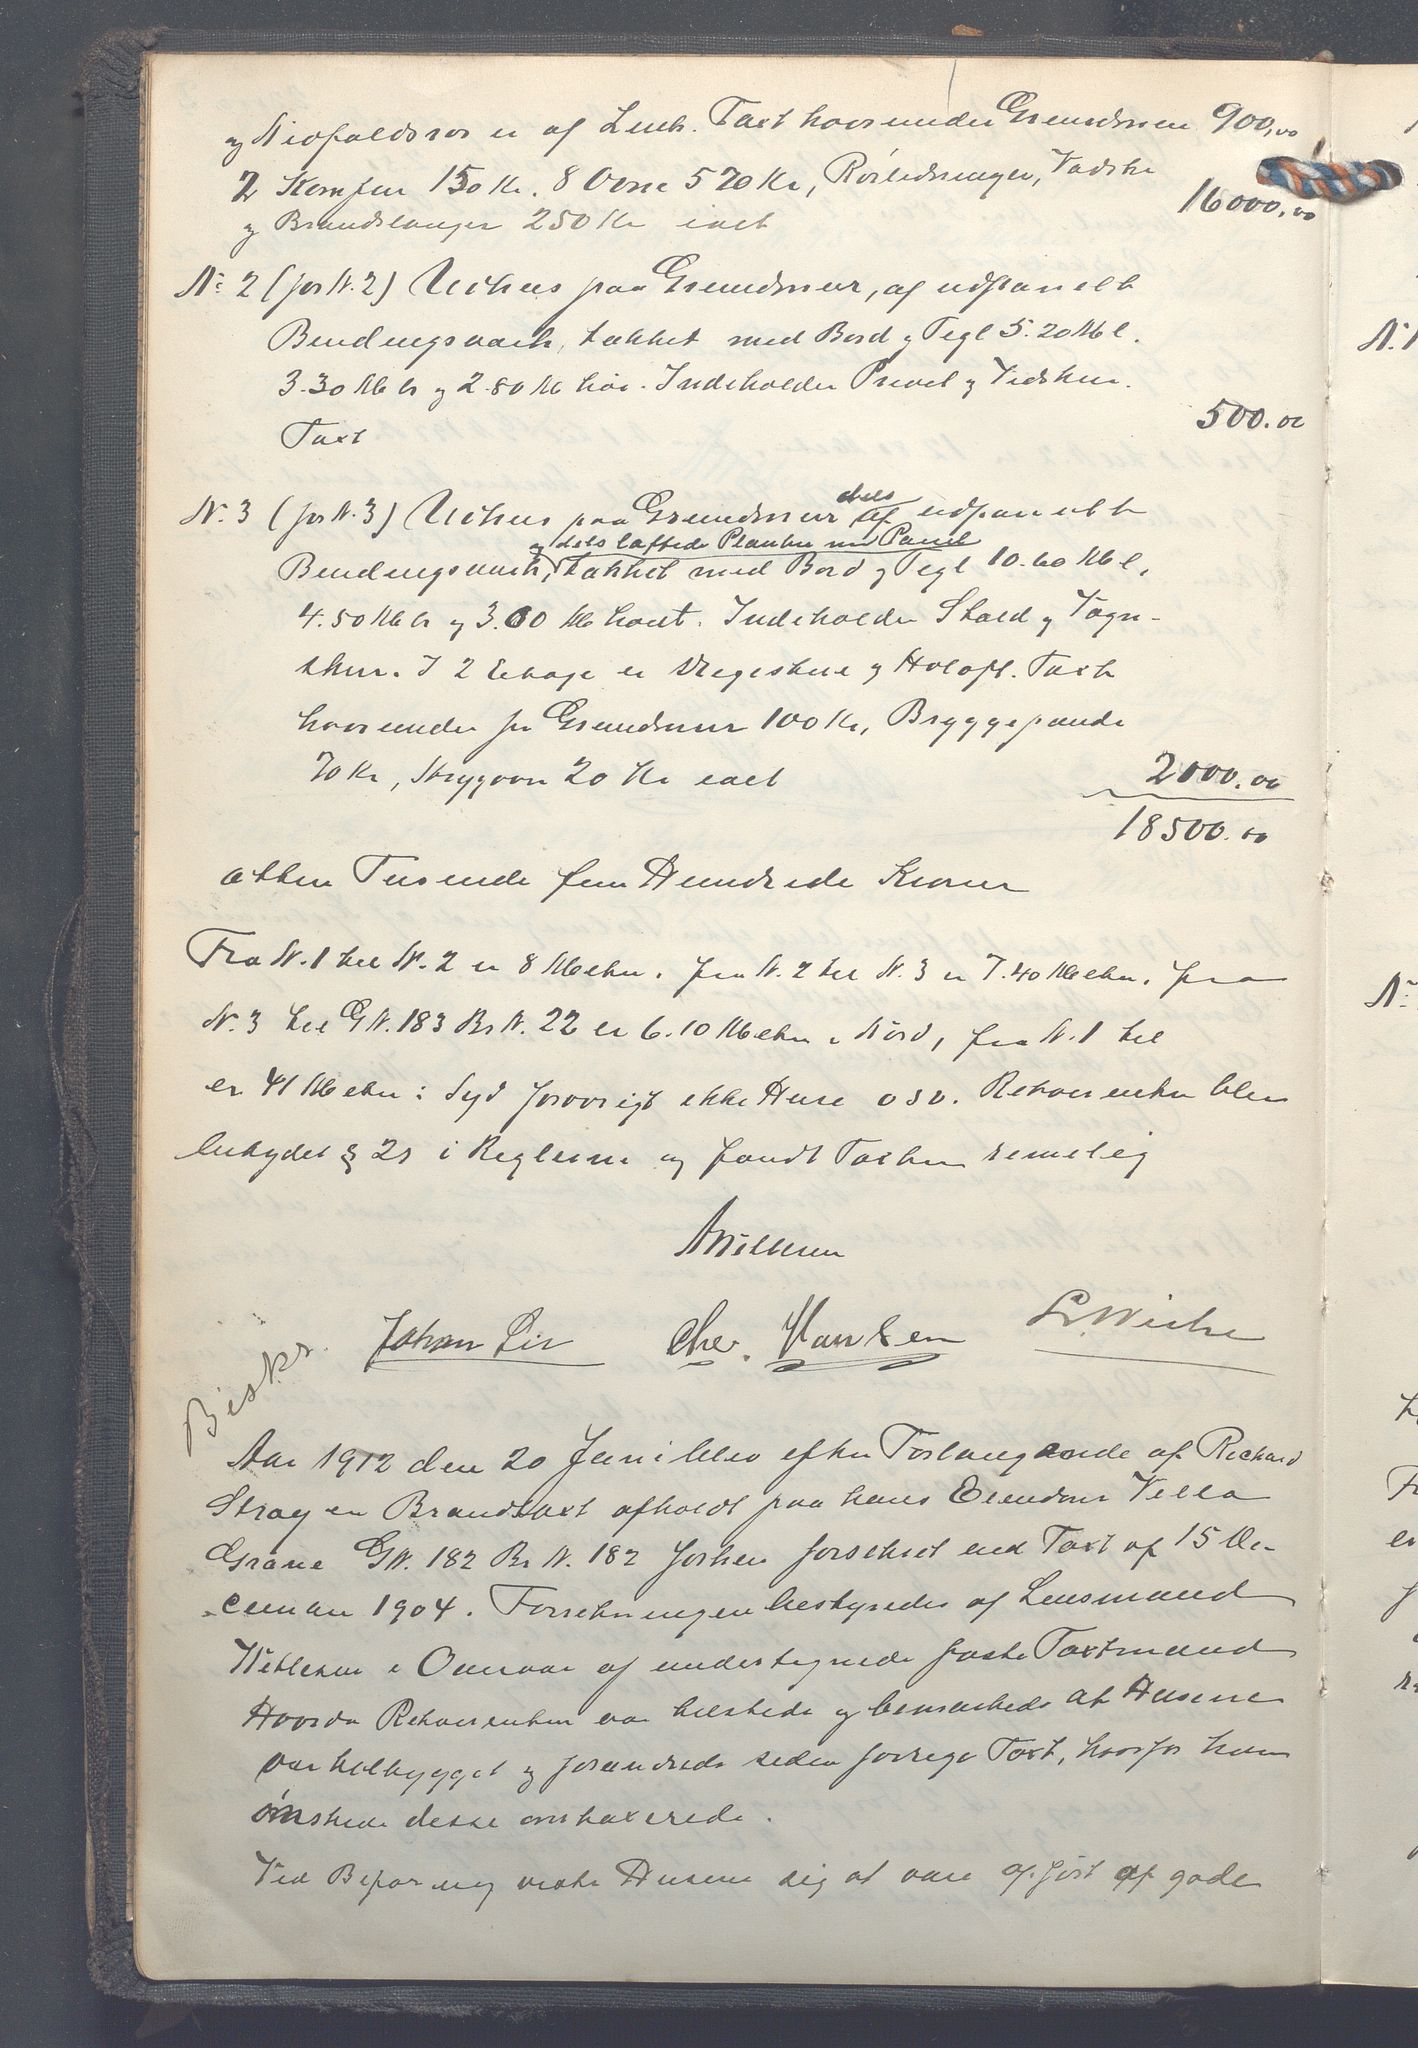 og Nedfaldsrør er af Zink. Taxt hvorunder Grundmur 900,00
2 Komfur 150 Kr. 8 Ovne 570 Kr, Rørledninger, Vadske
og Brandslanger 250 Kr ialt 16000.00
No 2 (før N. 2) Udhus paa Grundmur, af udpanelt
Bindingsværk, tækket med Bord og Tegl 5.20 M l.
3.30 M br og 2.80 M høi. Indeholder Privet og Vedskur.
Taxt 500.00
N. 3 (før N. 3) Udhus paa Grundmur dels af udpanelt
og dels laftede Planker med Panel
Bindingsværk, tækket med Bord og Tegl 10.60 M l,
4.50 M br og 3.00 M høit. Indeholder Stald og Vogn-
skur. I 2 Etage er Pigestue og Høloft. Taxt
hvorunder for Grundmur 100 Kr, Bryggepande
70 Kr, Strygovn 20 Kr ialt 2000.00
18500.00
atten Tusende fem Hundrede Kroner
Fra N. 1 til N. 2 er 8 Meter. fra N. 2 til N. 3 er 7.40 Meter. fra
N. 3 til GN. 183 Br N. 22 er 6.10 Meter i Nord, fra N. 1 til
er 41 Meter i Syd forøvrigt ikke Huse osv. Rekvirenten blev
betydet § 25 i Reglerne og fandt Taxten rimelig
Wetlesen
Johan Lie Chr. Hansen L. Wiche
Beskr.
Aar 1912 den 20 Juni blev efter Forlangende af Richard
Stray en Brandtaxt afholdt paa hans Eiendom Villa
Grane GN. 182 Br N. 182 før forsikret ved Taxt af 15 De-
cember 1904. Forretningen bestyredes af Lensmand
Wetlesen i Overvær af undertegnede faste Taxtmænd
Hvorda Rekvirenten var tilstede og bemærkede at Husene
var tilbygget og forandrede siden forrige Taxt, hvorfor han
ønskede disse omtaxerede.
Ved Befaring viste Husene sig at være opført af gode